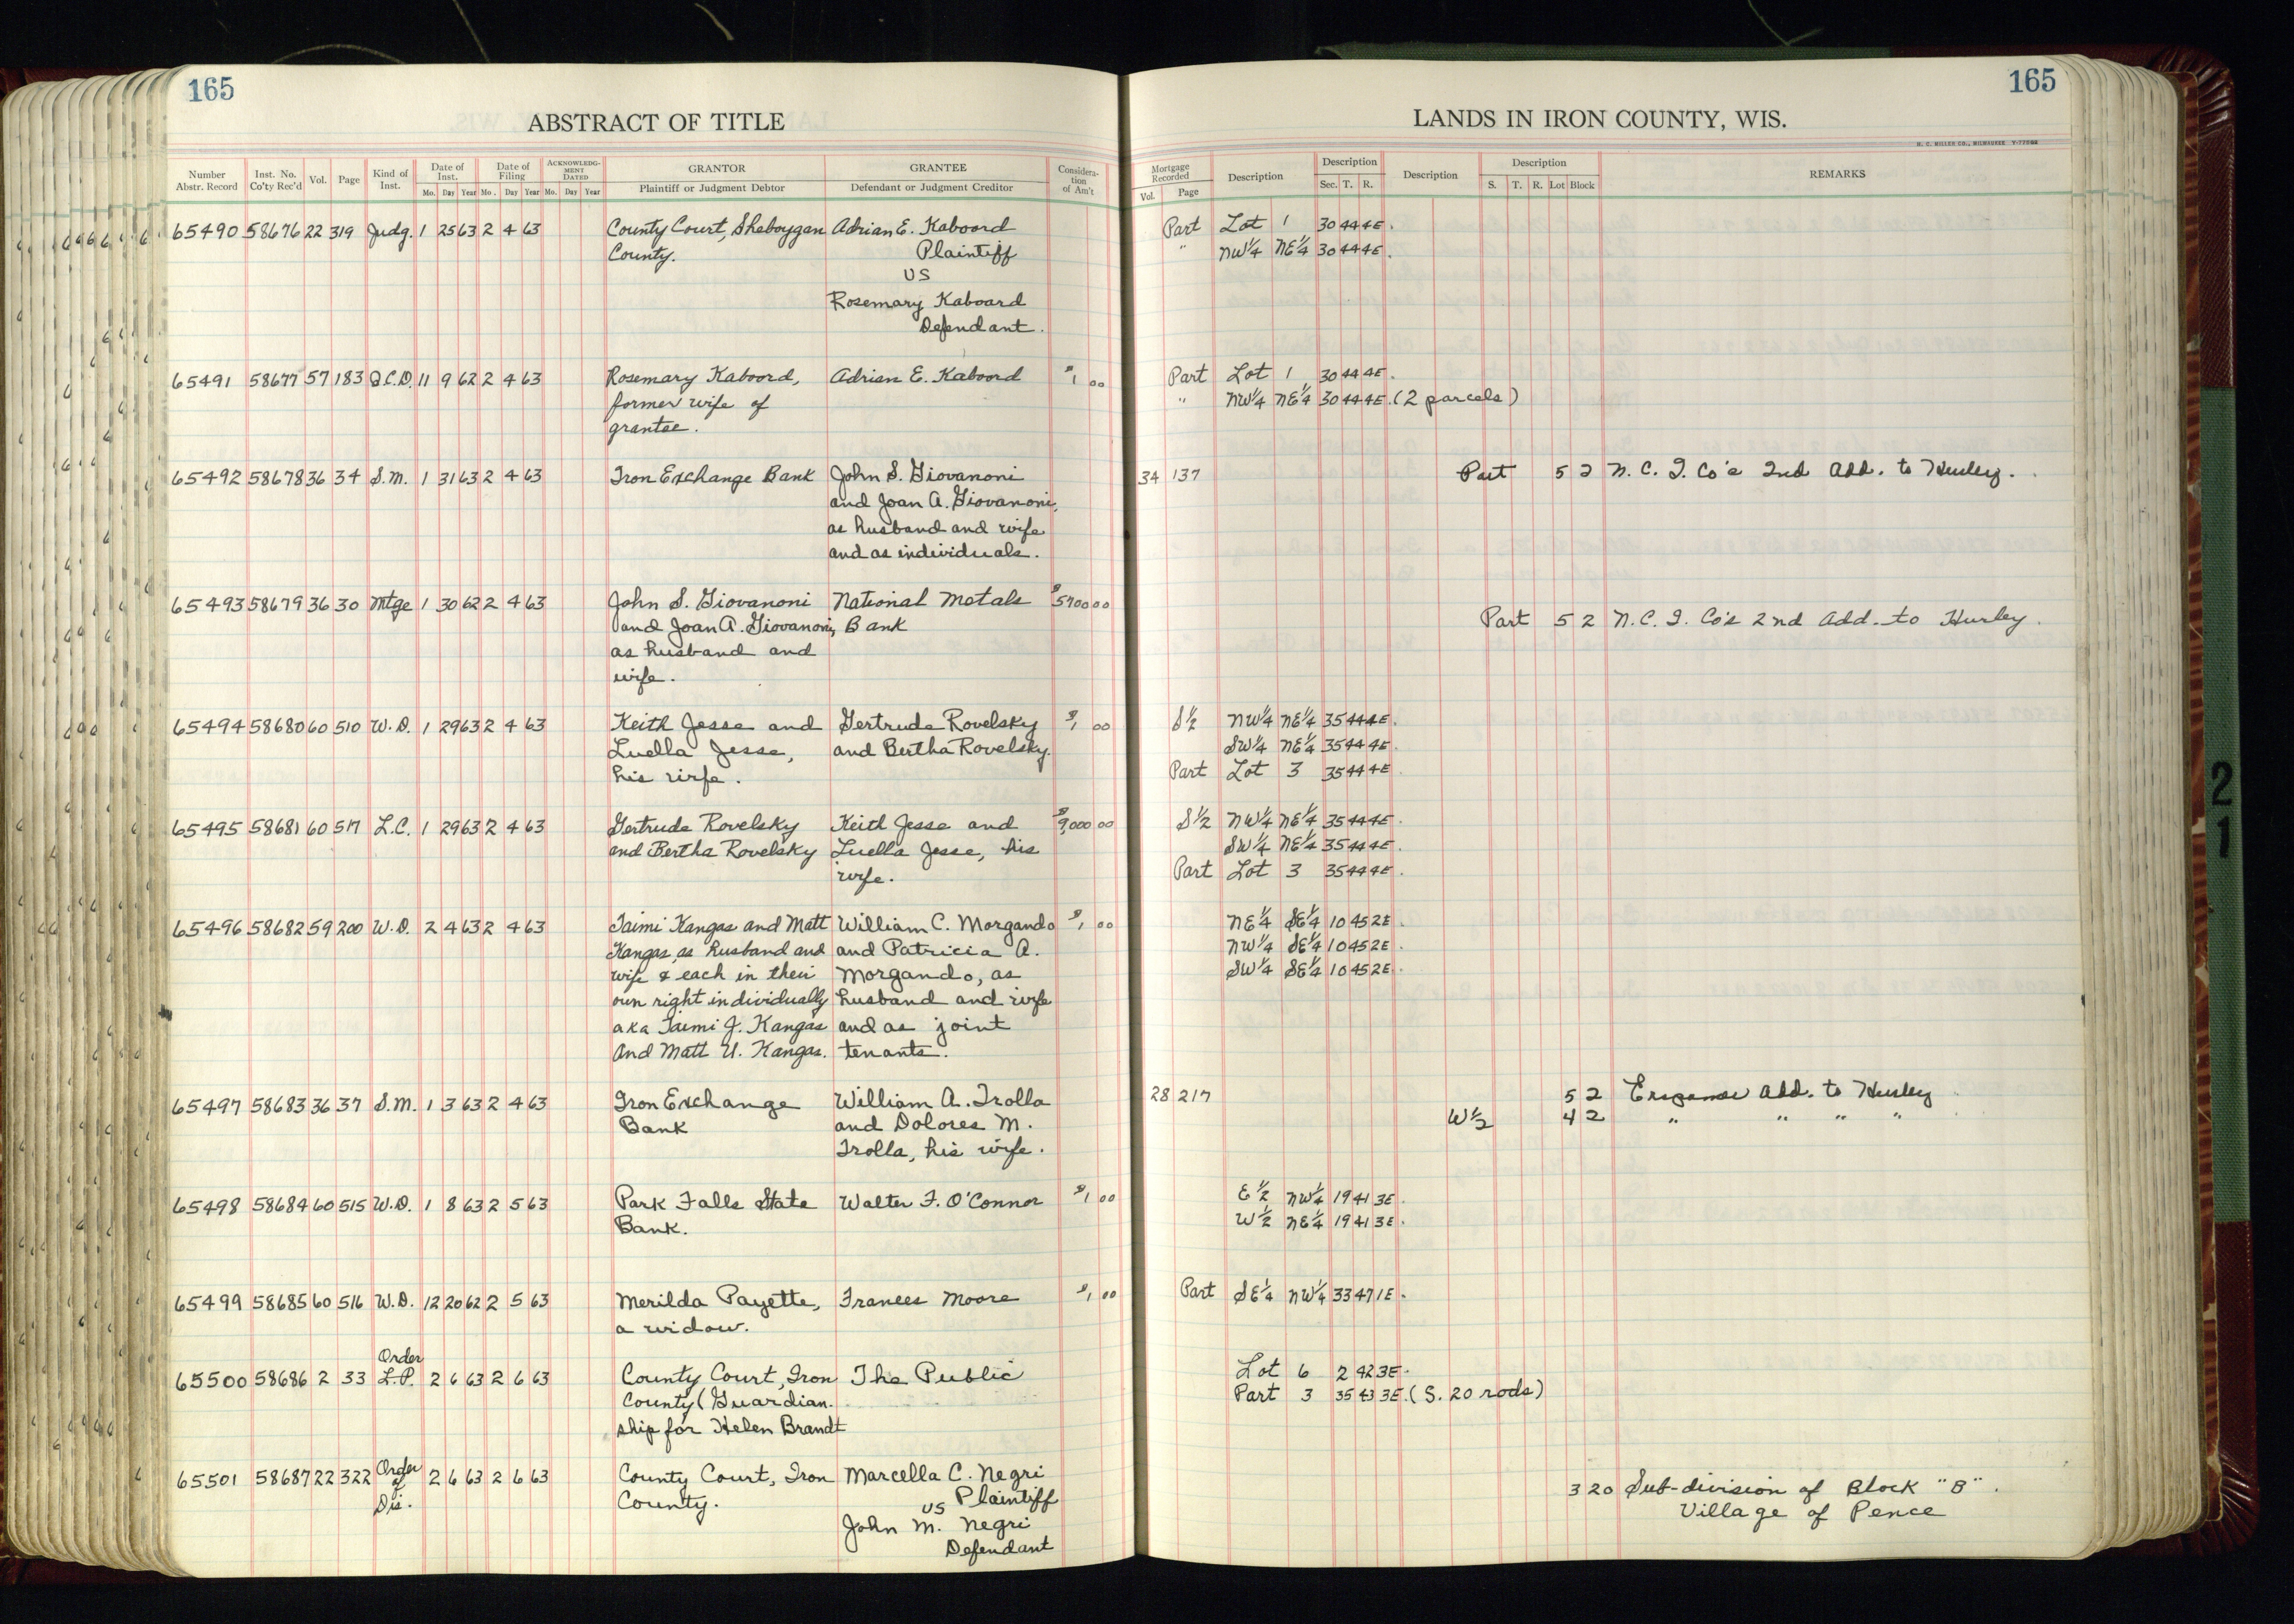 165
165
ABSTRACT OF TITLE
LANDS IN IRON COUNTY, WIS.
H. C. MILLER CO., MILWAUKEE
Number Abstr. Record
Inst. No. Co'ty Rec'd
Vol.
Page
Kind of Inst.
Date of Inst.
Mo. Day Year
Date of Filing
Mo. Day Year
ACKNOWLEDGMENT DATED
Mo. Day Year
GRANTOR
Plaintiff or Judgment Debtor
GRANTEE
Defendant or Judgment Creditor
Consideration of Am't
Mortgage Recorded
Vol. Page
Description
Description
Sec. T. R.
Description
Description
S. T. R. Lot Block
REMARKS
65490 58676 22 319 Judg. 1 25 63 2 4 63 County Court, Sheboygan Adrian E. Kaboord Part Lot 1 30 44 4E.
County. Plaintiff " NW¼ NE¼ 30 44 4E.
US
Rosemary Kaboard
Defendant.
65491 58677 57 183 Q.C.D. 11 9 62 2 4 63 Rosemary Kaboord, Adrian E. Kaboord $1 00 Part Lot 1 30 44 4E.
former wife of " NW¼ NE¼ 30 44 4E. (2 parcels)
grantee.
65492 58678 36 34 S.M. 1 31 63 2 4 63 Iron Exchange Bank John S. Giovanoni 34 137 Part 5 2 N. C. I. Co's 2nd Add. to Hurley.
and Joan A. Giovanoni,
as husband and wife
and as individuals.
65493 58679 36 30 Mtge 1 30 62 2 4 63 John S. Giovanoni National Metals $5700 00 Part 5 2 N. C. I. Co's 2nd Add. to Hurley.
and Joan A. Giovanoni, Bank
as husband and
wife.
65494 58680 60 510 W.D. 1 29 63 2 4 63 Keith Jesse and Gertrude Rovelsky $1 00 S½ NW¼ NE¼ 35 44 4E.
Luella Jesse, and Bertha Rovelsky. SW¼ NE¼ 35 44 4E.
his wife. Part Lot 3 35 44 4E.
65495 58681 60 517 L.C. 1 29 63 2 4 63 Gertrude Rovelsky Keith Jesse and $9,000 00 S½ NW¼ NE¼ 35 44 4E.
and Bertha Rovelsky Luella Jesse, his SW¼ NE¼ 35 44 4E.
wife. Part Lot 3 35 44 4E.
65496 58682 59 200 W.D. 2 4 63 2 4 63 Taimi Kangas and Matt William C. Morgando $1 00 NE¼ SE¼ 10 45 2E.
Kangas, as husband and and Patricia A. NW¼ SE¼ 10 45 2E.
wife & each in their Morgando, as SW¼ SE¼ 10 45 2E.
own right individually husband and wife
aka Taimi J. Kangas and as joint
And Matt U. Kangas. tenants.
65497 58683 36 37 S.M. 1 3 63 2 4 63 Iron Exchange William A. Trolla 28 217 5 2 Add. to Hurley
Bank and Dolores M. W½ 4 2 " " " "
Trolla, his wife.
65498 58684 60 515 W.D. 1 8 63 2 5 63 Park Falls State Walter F. O'Connor $1 00 E½ NW¼ 19 41 3E.
Bank. W½ NE¼ 19 41 3E.
65499 58685 60 516 W.D. 12 20 62 2 5 63 Merilda Payette, Frances Moore $1 00 Part SE¼ NW¼ 33 47 1E.
a widow.
Order
65500 58686 2 33 L.P. 2 6 63 2 6 63 County Court, Iron The Public Lot 6 2 42 3E.
County (Guardian- Part 3 35 43 3E. (S. 20 rods)
ship for Helen Brandt
65501 58687 22 322 Order of Dis. 2 6 63 2 6 63 County Court, Iron Marcella C. Negri 3 20 Sub-division of Block "B".
County. US Plaintiff Village of Pence
John M. Negri
Defendant
21